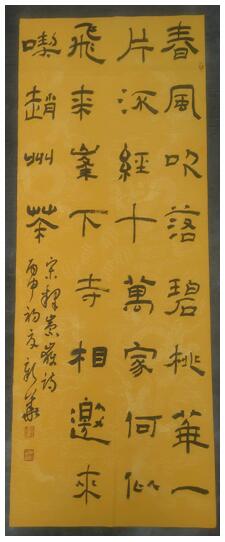 春風吹落碧桃華一
片流經十萬家何似
飛来峯下寺相邀来
喫趙州茶
宋釋崇嶽詩
丙申初夏新華